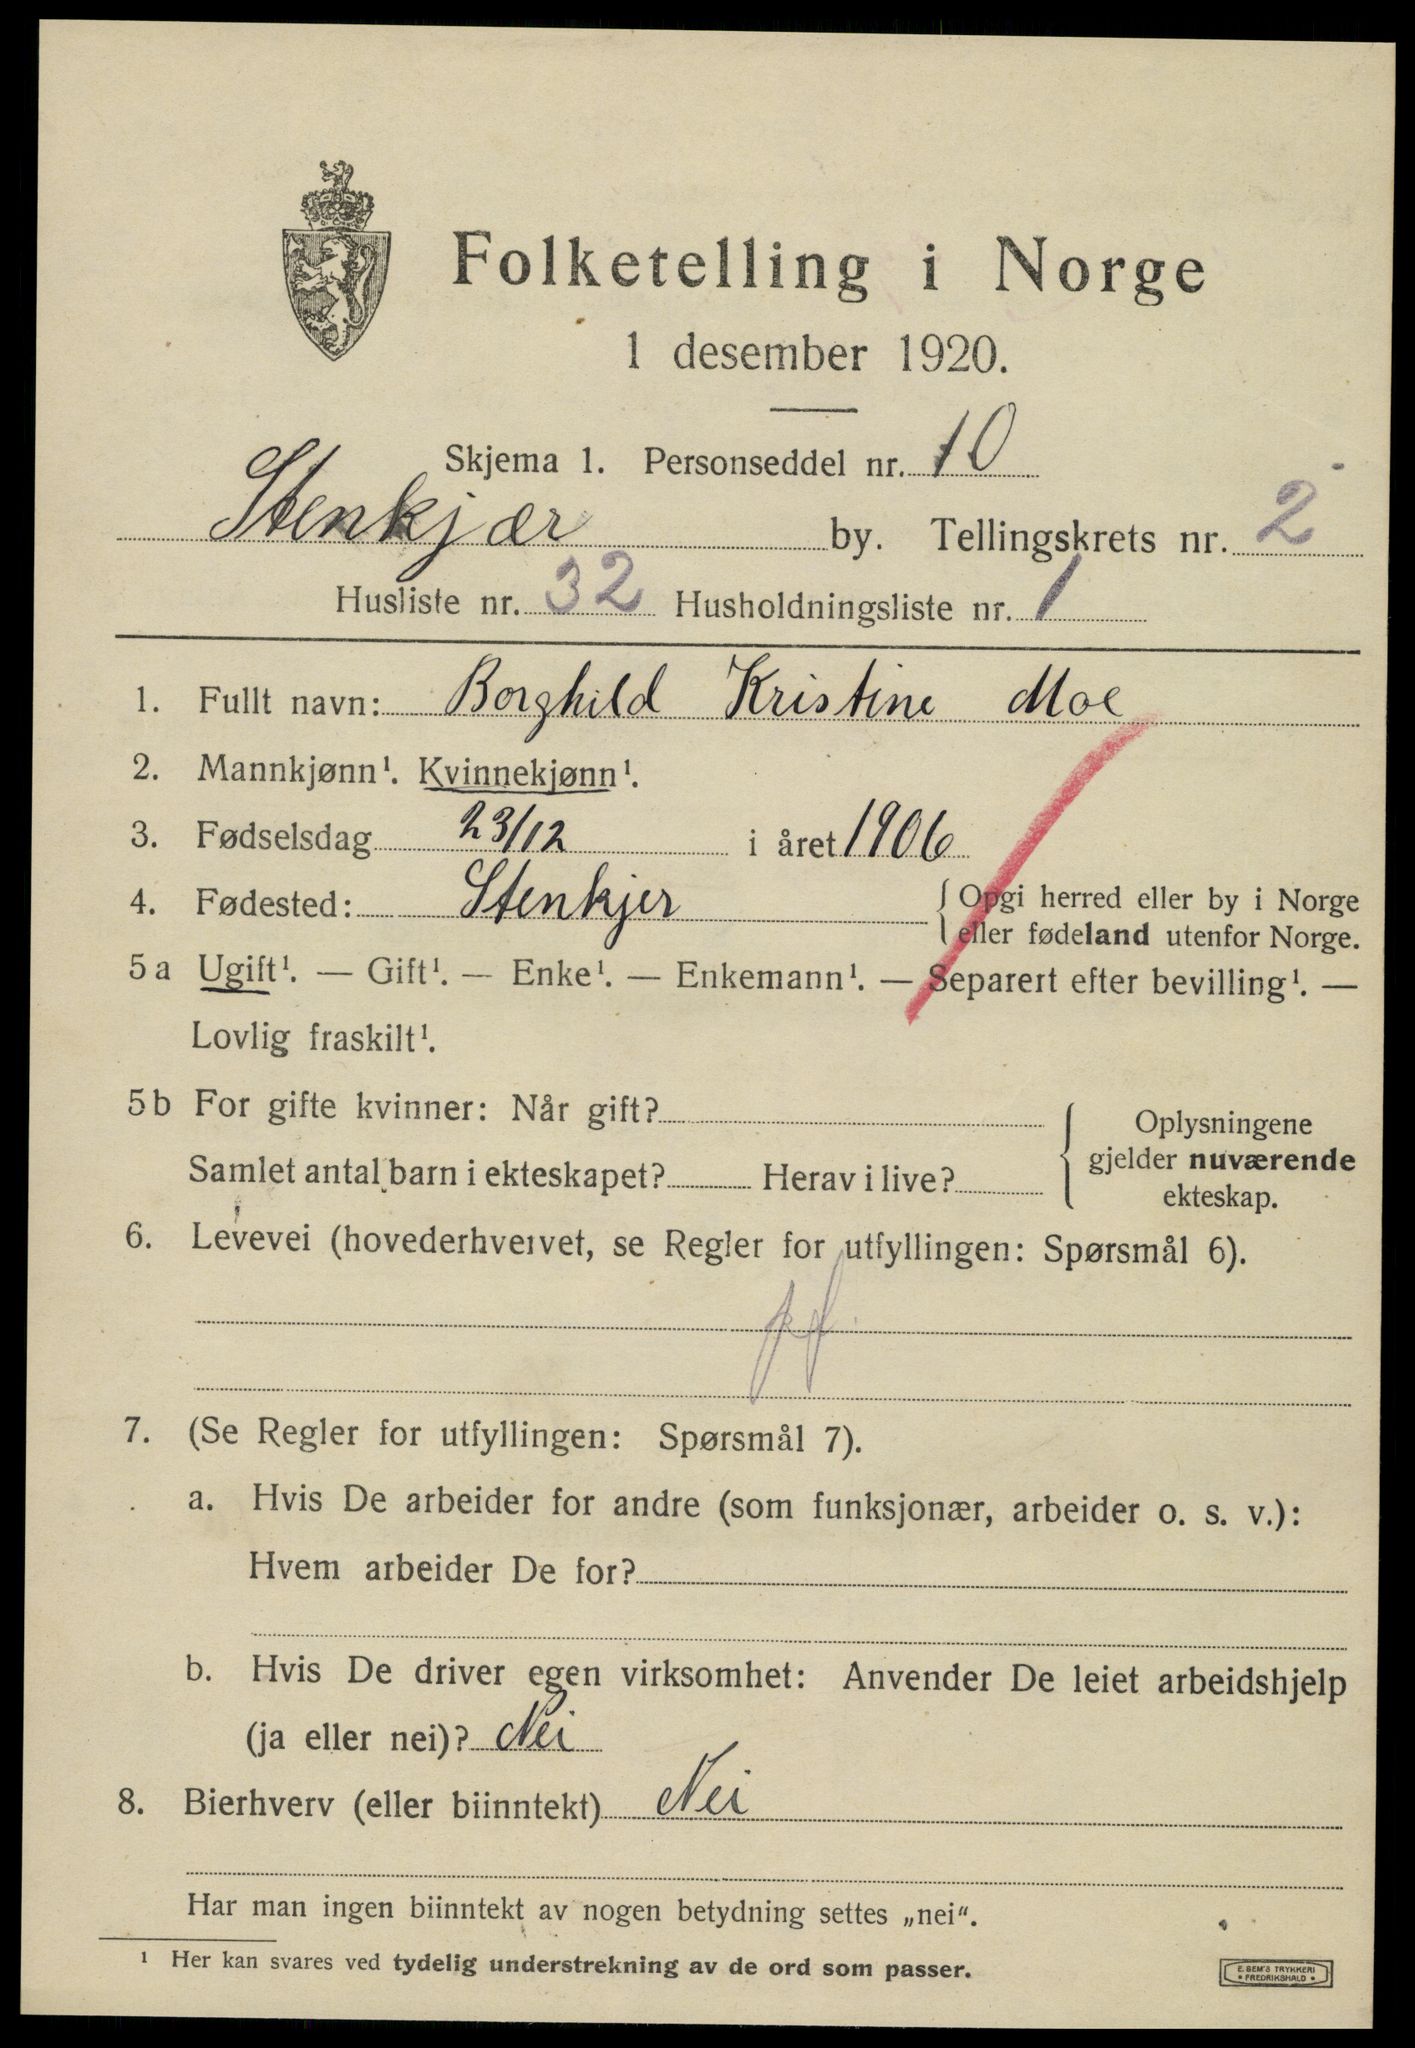 Folketelling i Norge
1 desember 1920.
Skjema 1. Personseddel nr. 10
Stenkjær by. Tellingskrets nr. 2
Husliste nr. 32 Husholdningsliste nr. 1
1. Fullt navn: Borghild Kristine Moe
2. Mannkjønn¹. Kvinnekjønn¹.
3. Fødselsdag 23/12 i året 1906
4. Fødested: Stenkjer { Opgi herred eller by i Norge
eller fødeland utenfor Norge.
5 a Ugift¹. — Gift¹. — Enke¹. — Enkemann¹. — Separert efter bevilling¹. —
Lovlig fraskilt¹.
5 b For gifte kvinner: Når gift?
Samlet antal barn i ekteskapet? Herav i live?
{ Oplysningene
gjelder nuværende
ekteskap.
6. Levevei (hovederhvervet, se Regler for utfyllingen: Spørsmål 6).
7. (Se Regler for utfyllingen: Spørsmål 7).
a. Hvis De arbeider for andre (som funksjonær, arbeider o. s. v.):
Hvem arbeider De for?
b. Hvis De driver egen virksomhet: Anvender De leiet arbeidshjelp
(ja eller nei)? Nei
8. Bierhverv (eller biinntekt) Nei
Har man ingen biinntekt av nogen betydning settes „nei".
¹ Her kan svares ved tydelig understrekning av de ord som passer.
E. SEM'S TRYKKERI
• FREDRIKSHALD •